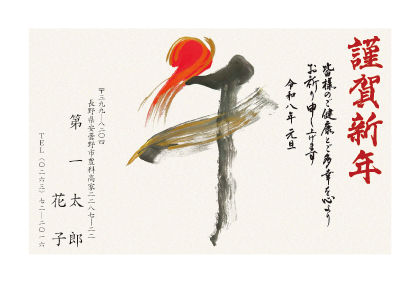 謹賀新年
皆様のご健康とご多幸を心より
お祈り申し上げます
令和八年 元旦
午
〒三九九―八二〇四
長野県安曇野市豊科高家二二八七―二二
第一 太郎
花子
TEL(〇二六三)七二―二〇一六